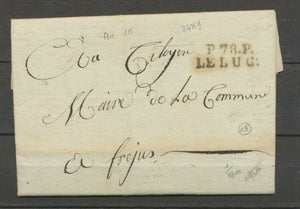 An 10
24x9
P.78.P.
LE LUC.
Au Citoyen
Maire de La Commune
15
a frejus